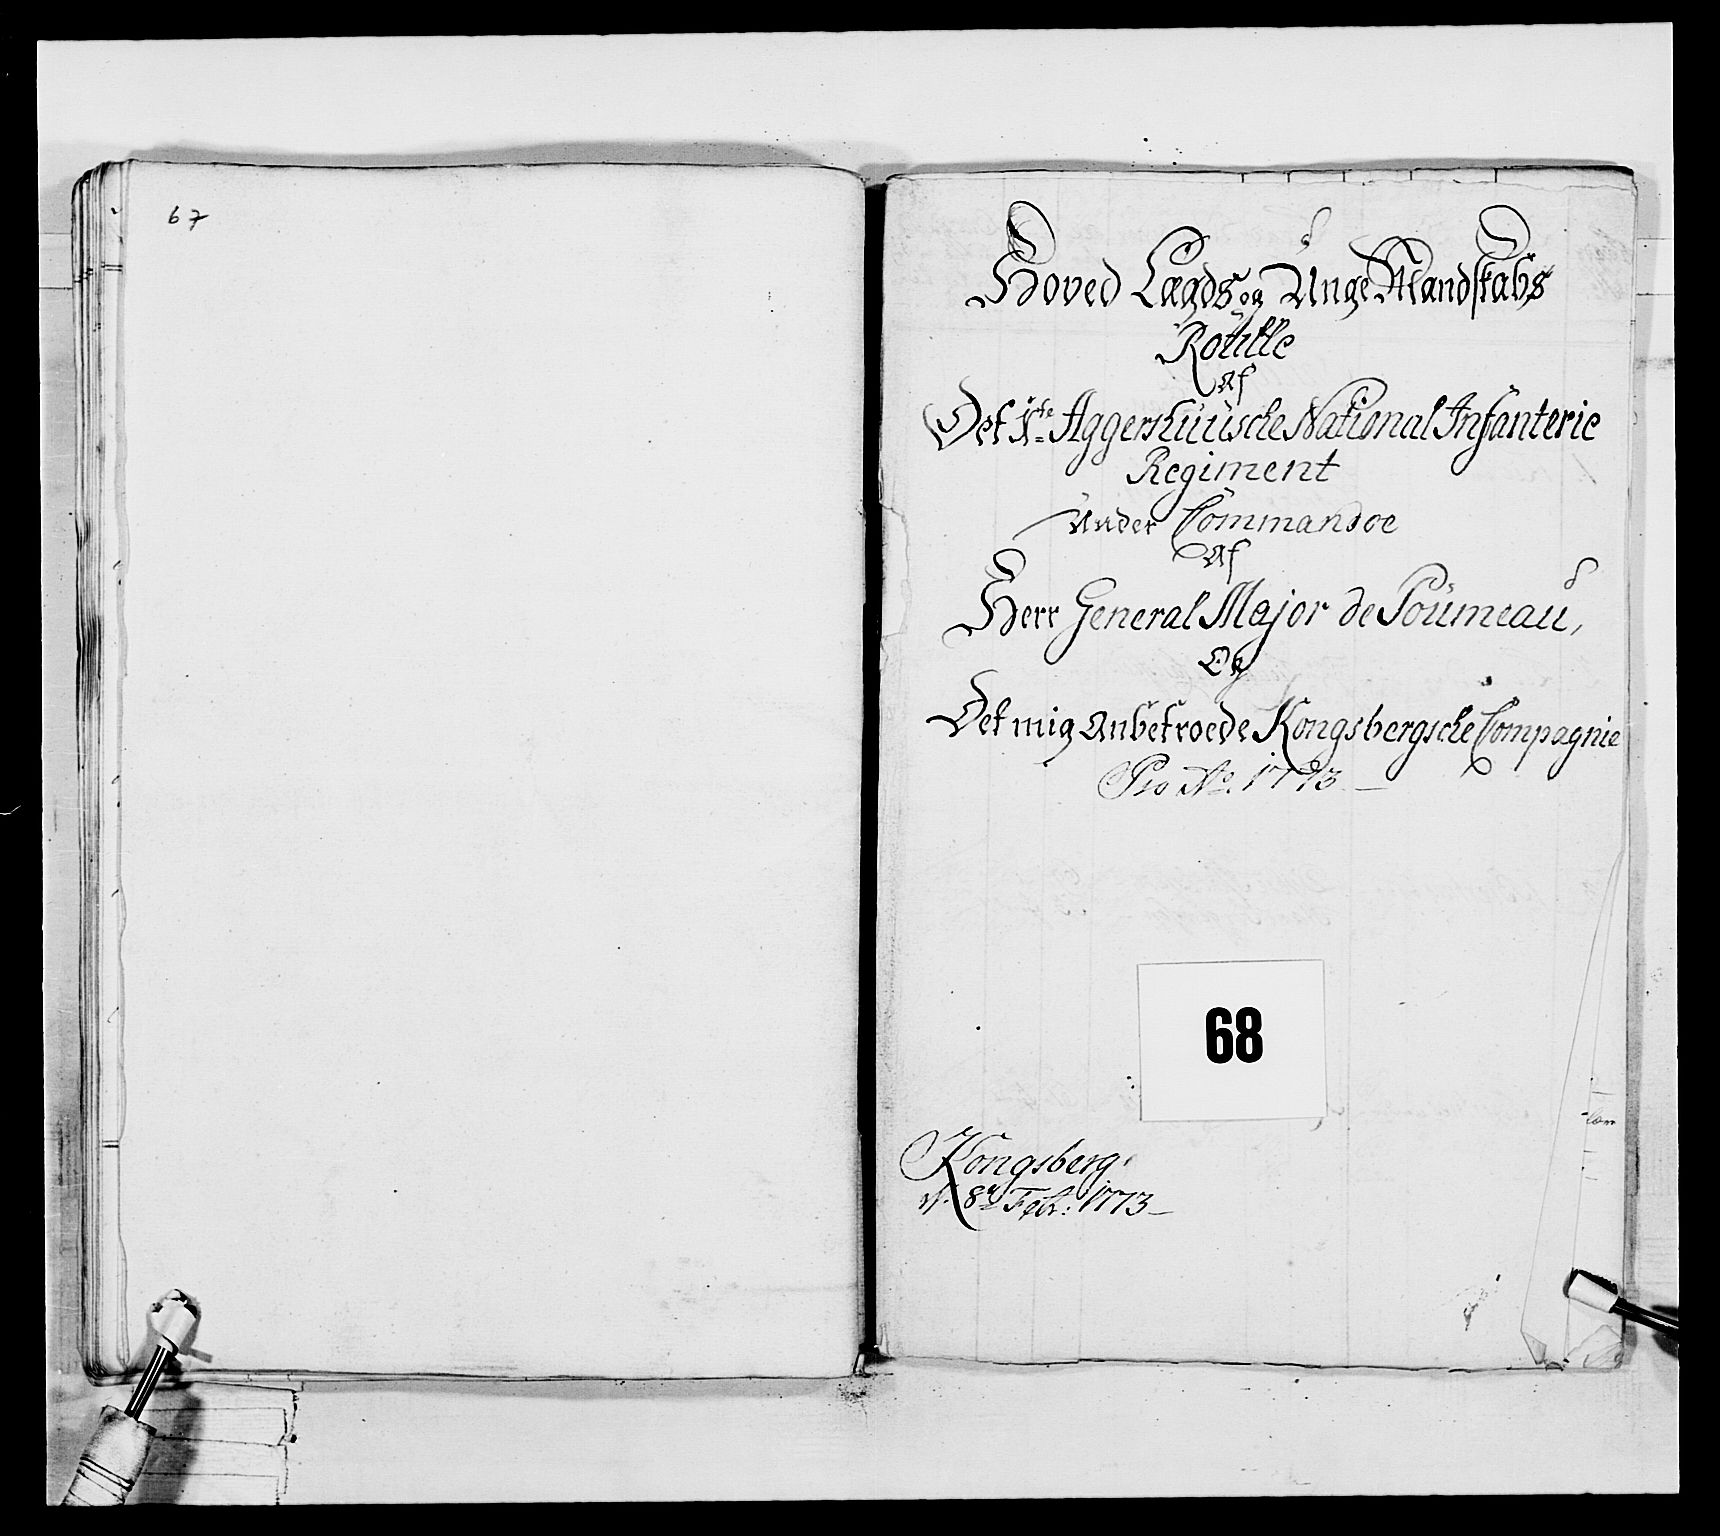 67
Hoved Lægds og Unge Mandskabs
Roulle
Af
Det 1te Aggershuusche National Infanterie
Regiment
Under Commandoe
Af
Herr General Major de Poumeau,
Og
Det mig Anbetroede Kongsbergsche Compagnie
Pro Ao. 1773
68
Kongsberg
d. 8de Febr: 1773